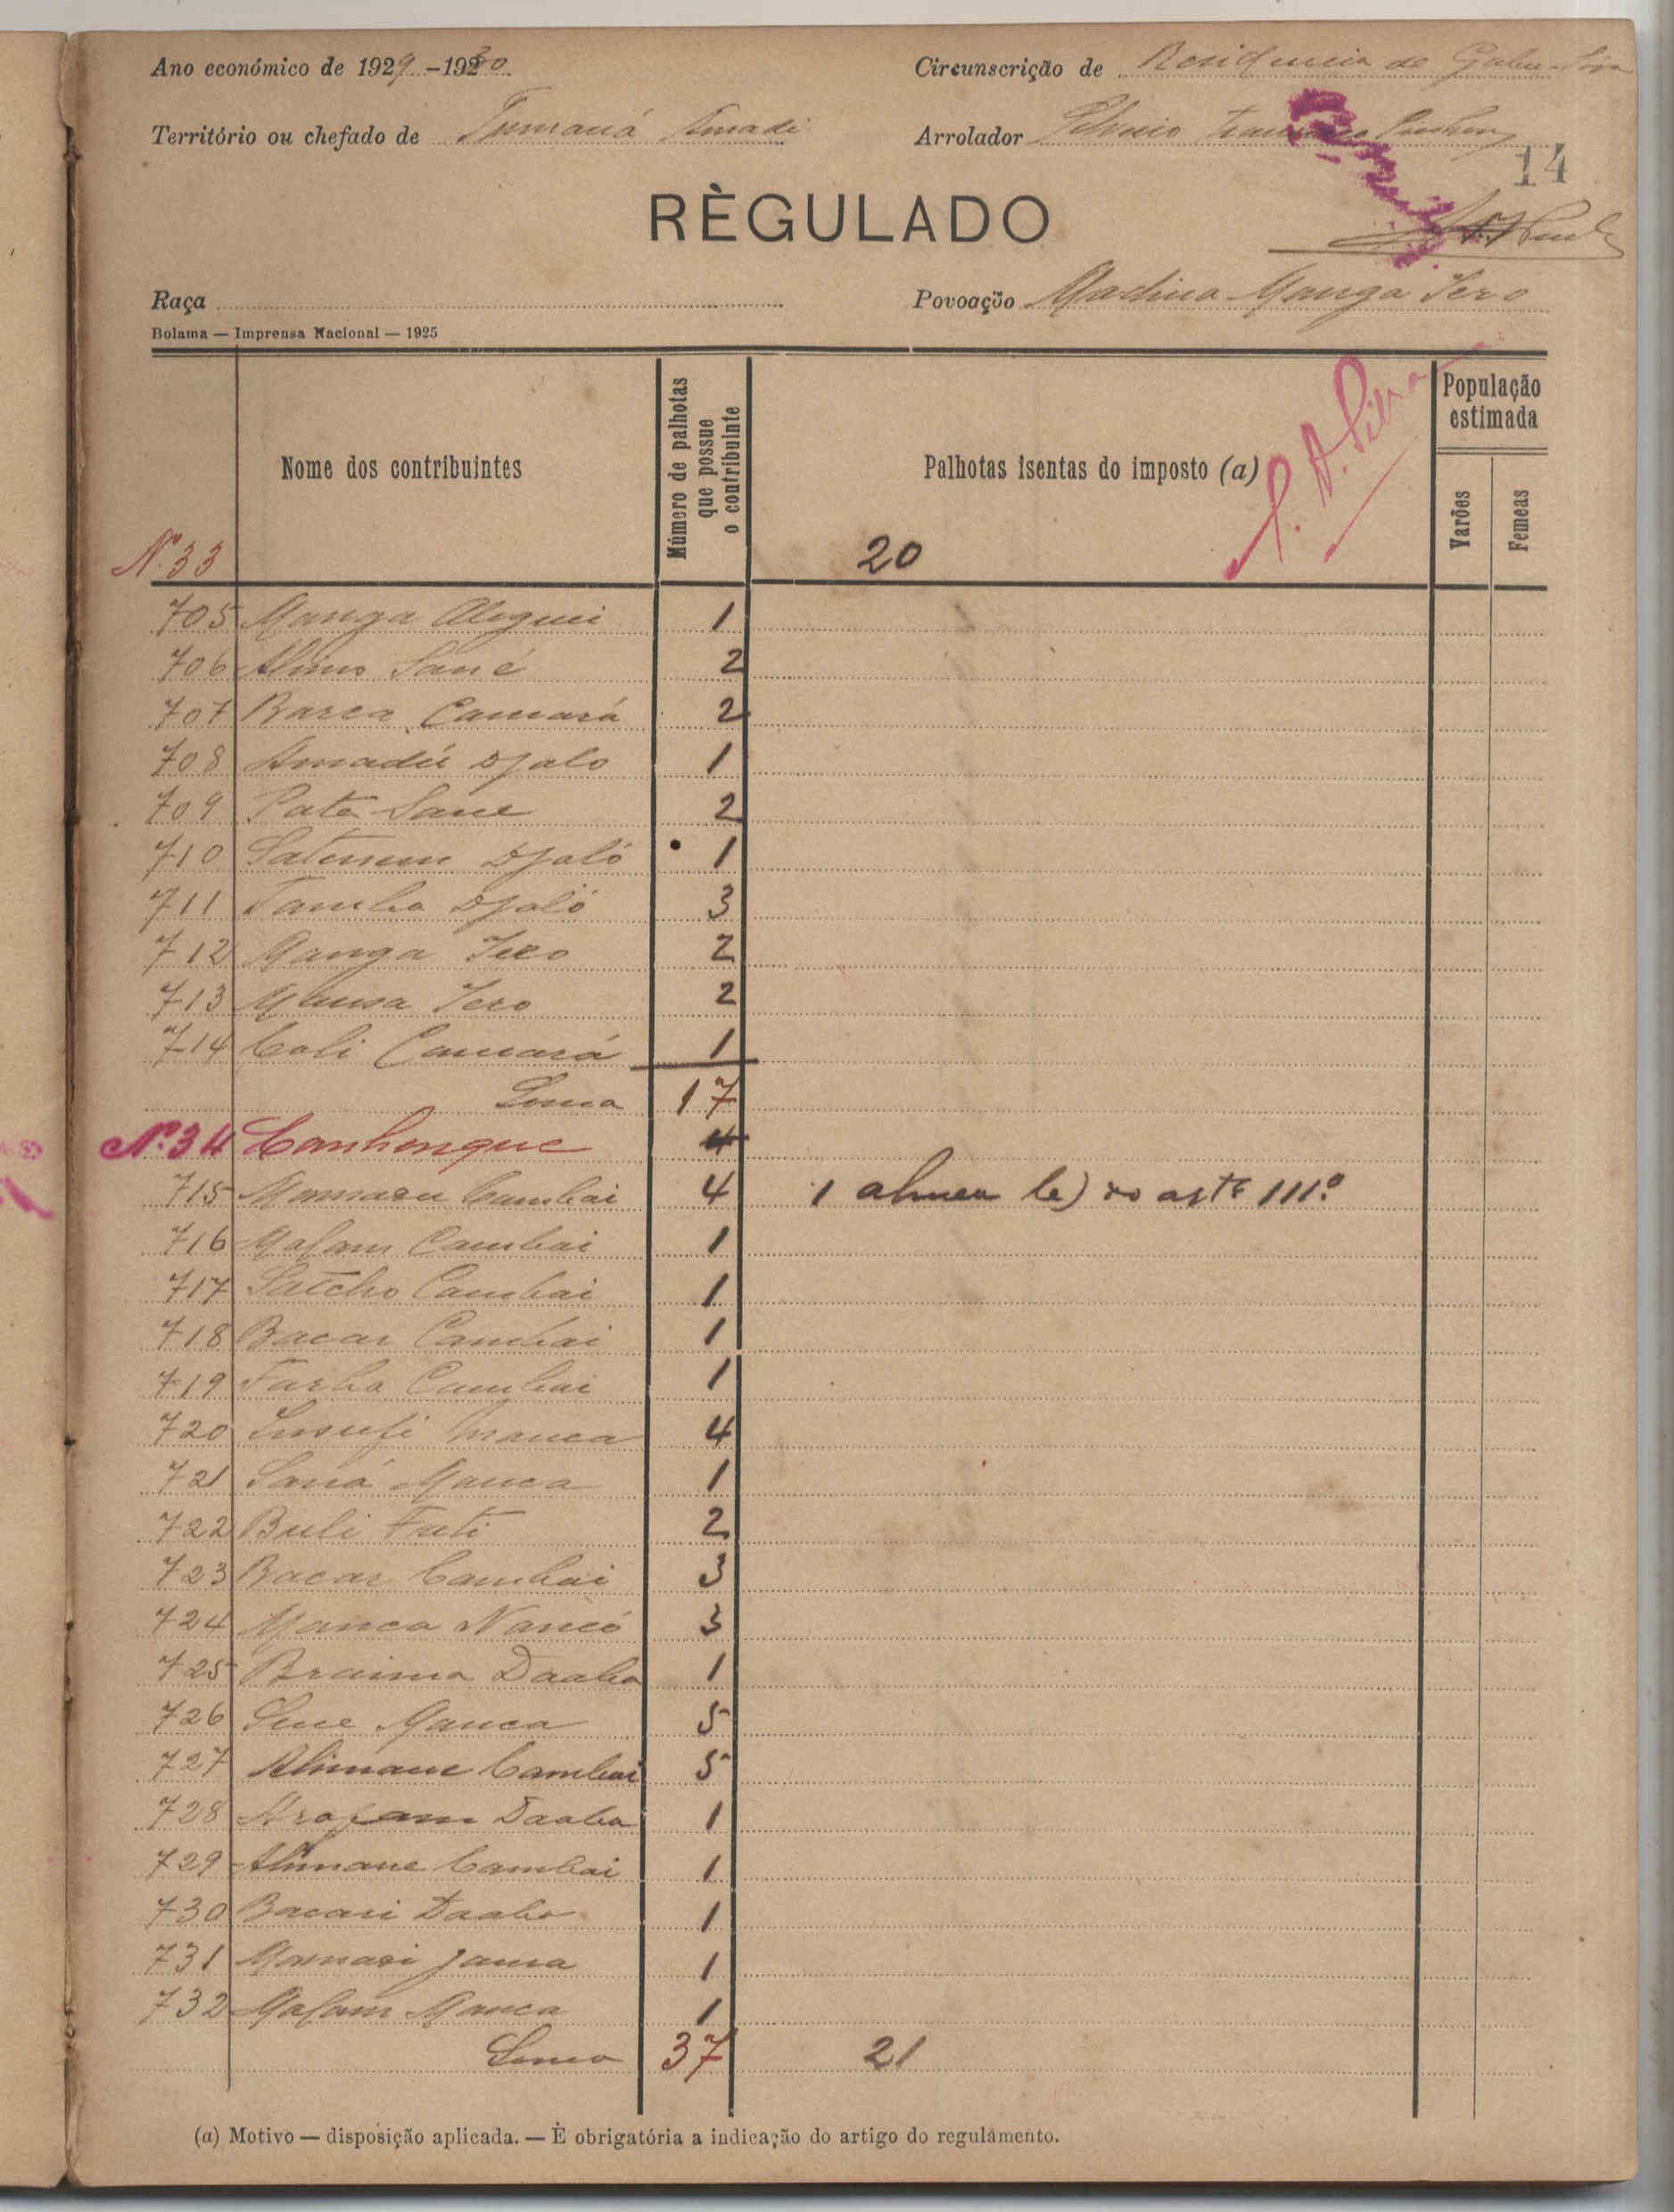 Ano económico de 1929-1930
Circunscrição de Residencia de Gabu-Sára
Território ou chefado de Tumaná Amadi
Arrolador Silverio
14
RÈGULADO
Raça
Povoação Madina Manga Iero
Bolama — Imprensa Nacional — 1925
Nome dos contribuintes
Número de palhotas que possue o contribuinte
Palhotas isentas do imposto (a)
População estimada
Varões
Femeas
N.º 33
20
705 Manga Alegui 1
706 Sané 2
707 Barca Camará 2
708 Amadú Djalo 1
709 Pate Sane 2
710 Djaló 1
711 Tamba Djaló 3
712 Manga Iero 2
713 Mussa Iero 2
714 Coli Camará 1
Soma 17
N.º 34 Canhenque 4
715 Cambai 4 1 do artº 111.º
716 Malam Cambai 1
717 Satcho Cambai 1
718 Bacar Cambai 1
719 Farba Cambai 1
720 Manca 4
721 Saná Manca 1
722 Buli Fati 2
723 Bacar Cambai 3
724 Manca Nancó 3
725 Braima Daaba 1
726 Manca 5
727 Alimame Cambai 5
728 Arafam Daaba 1
729 Alimane Cambai 1
730 Bacari Daaba 1
731 Mamari 1
732 Malam Manca 1
Soma 37 21
(a) Motivo — disposição aplicada. — È obrigatória a indicação do artigo do regulamento.